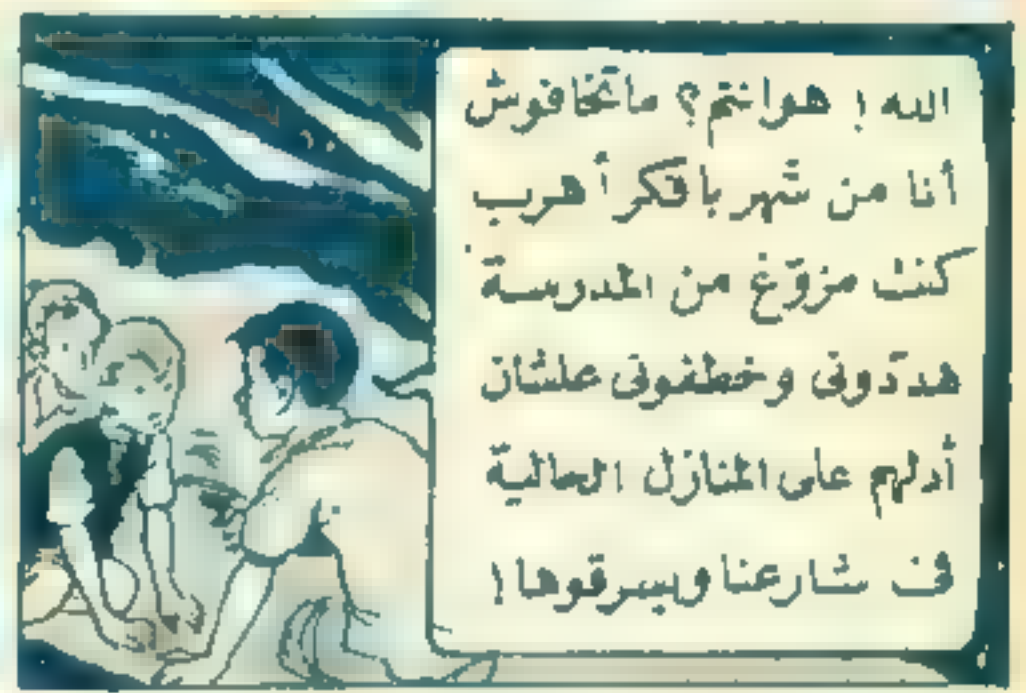 الله ! هوانتم؟ ماتخافوش
أنا من شهر بافكر أهرب
كنت مزوّغ من المدرسة
هددّونى وخطفونى علشان
أدلهم على المنازل الخالية
فى شارعنا ويسرقوها !